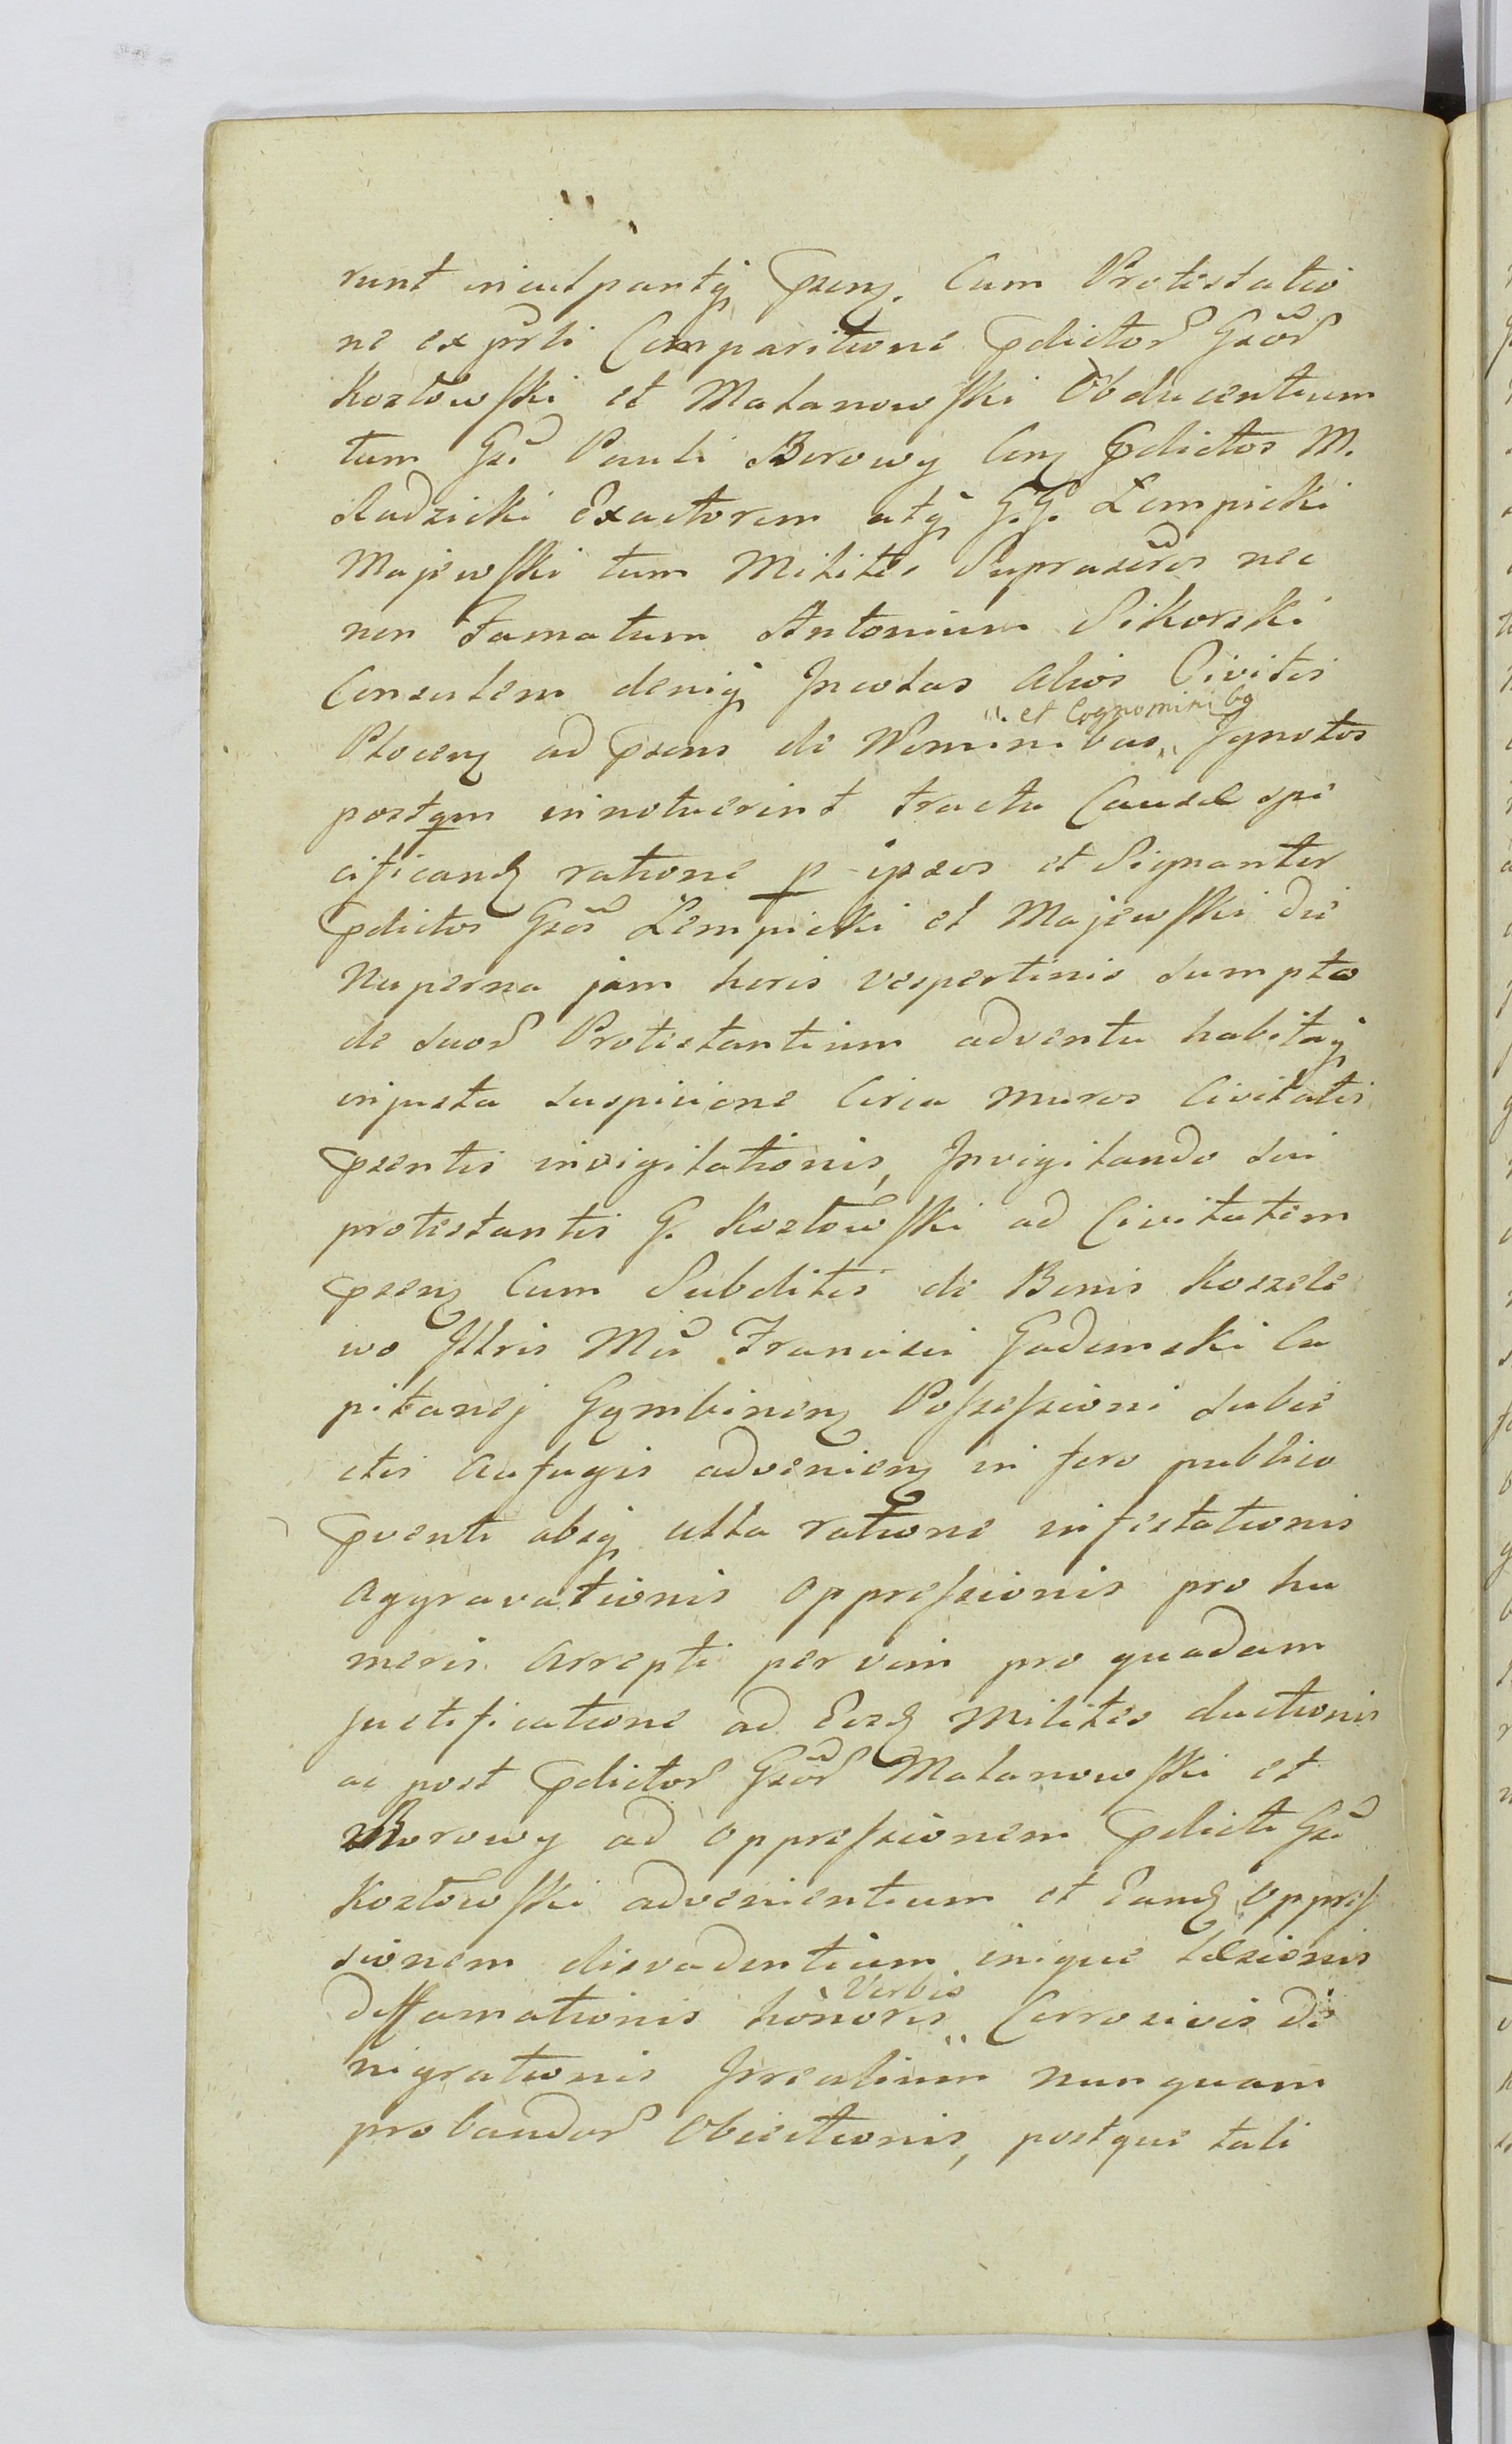 runt inculpantq Prnz. Cum Protestatio
ne ex prti Comparitione Pdictor Gsor
Kozłowski et Małanowski Obducentium
tum Gsi Pauli Borowy Conz Pdictos M.
Radzicki Exactorem atq G.G. Łempicki
Majewski tum Milites Suprascros nec
non Famatum Antonium Sikorski
Consulem deniq Incolas alios Civitis
Plocenz ad Psens de Nominibus „ et Cognominibq „ Ignotos
postqm innotuerint tractu Causæ spe
cificandz ratione p ipsos et Signanter
Pdictos Gsos Łempicki et Majewski die
Nuperna jam horis vespertinis sumpta
de suor Protestantium adventu habitaq
injusta suspicione circa muros Civitatis
Psentis invigilationis, Invigilando sui
protestantis G. Kozłowski ad Civitatem
Psenz Cum Subditis de Bonis Koszele
wo Illris Mci Francisci Gadomski Ca
pitanej Gymbinenz Possessioni subie
ctis aufugis advenienz in foro publico
Pventi absq ulla ratione infestationis
aggravationis oppressionis pro hu
meris arrepti per vim pro quadam
justificatione ad Eosdz Milites ductionis
ac post Pdictor Gsor Małanowski et
Borowy ad oppressionem Pdicti Gsi
Kozłowski advenientium et Eandz oppres
sionem disvadentium inique læsionis
diffamationis honoris „ Verbis Corrosivis de
nigrationis Irrealium nunquam
probandor Obiectionis, postque tali